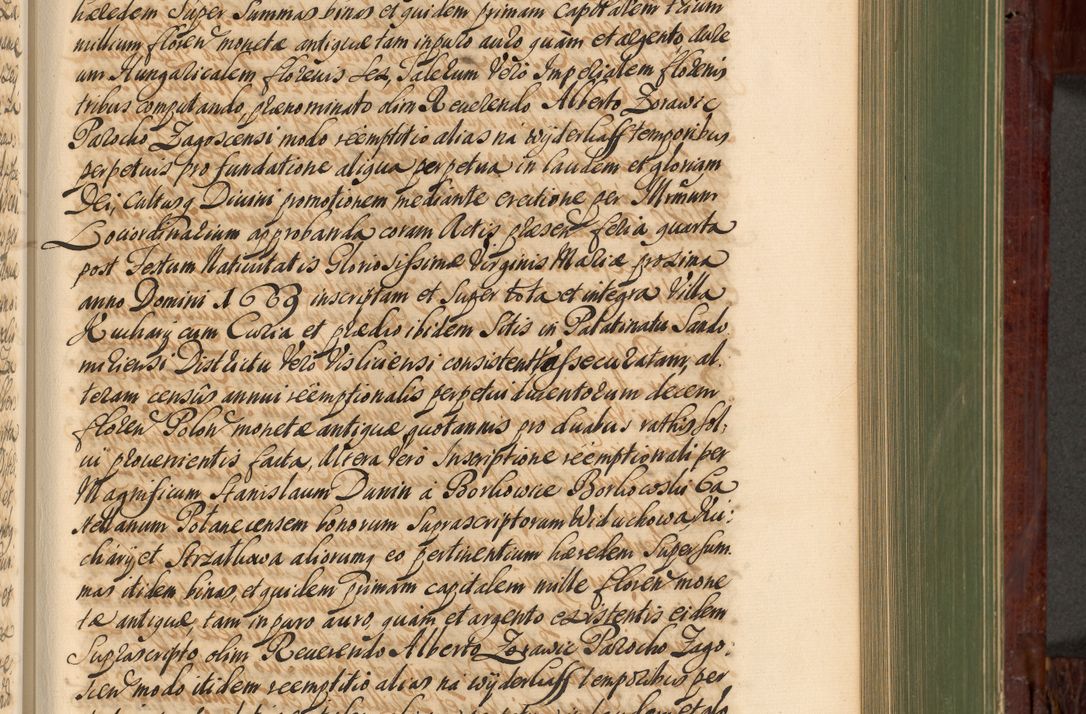 hæredem super Summas binas et quidem primam capitalem trium
millium floren monetæ antiquæ tam in puro auro quàm et argento dure
um Hungaricalem florenis sex, Talerum Vero Imperialem florenis
tribus computando, prænominato olim Reuerendo Alberto Zorawic
Parocho Zagoscensi modo reemptitio alias na wyderkaff temporibus
perpetuis pro fundatione aliqua perpetua in laudem et gloriam
Dei, cultusq Diuini promotionem mediante erectione per Illmum
Loci ordinarium approbanda coram Actis præsen feria quarta
post Festum Natiuitatis Gloriosissimæ Virginis Mariæ proxima
anno Domini 1669 inscriptam et super tota et integra Villa
Kucharij cum Curia et prædio ibidem Sitis in Palatinatu Sando
miriensi Districtu Vero Visliciensi consistent assecuratam, al
teram censûs annui reëmptionalis perpetui ducentorum decem
floren Polon monetæ antiquæ quotannis pro duabus rathis sol,
ui prouenientis facta, Altera Vero Inscriptione reëmptionali per
Magnificum Stanislaum Dunin a Borkowice Borkowski Ca
stellanum Połanecensem bonorum suprascriptorum Widuchowa Ku:
charij et Strzałkowa aliorumq eo pertinentium hæredem super sum
mas itidem binas, et quidem primam capitalem mille floren mone
tæ antiquæ, tam in puro auro, quam et argento existentis eidem
suprascripto olim Reuerendo Alberto Zorawic Parocho Zago:
scien modo itidem reemptitio alias na wyderkaff temporibus per